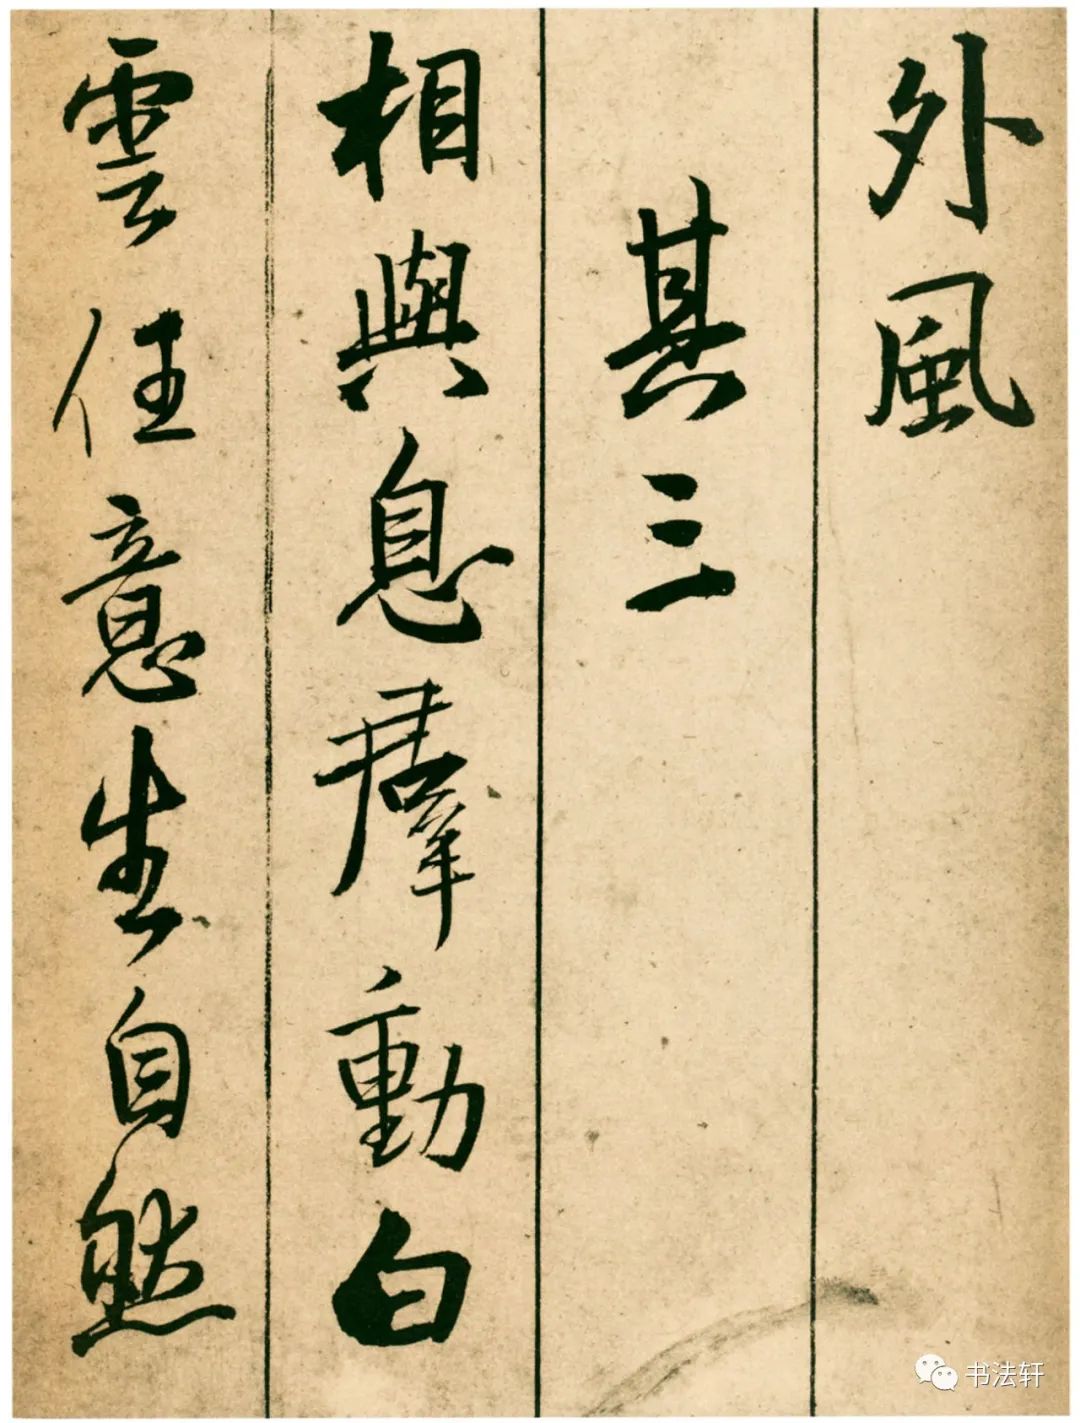 外風
其三
相與息羣動白
雲任意生自然
书法轩